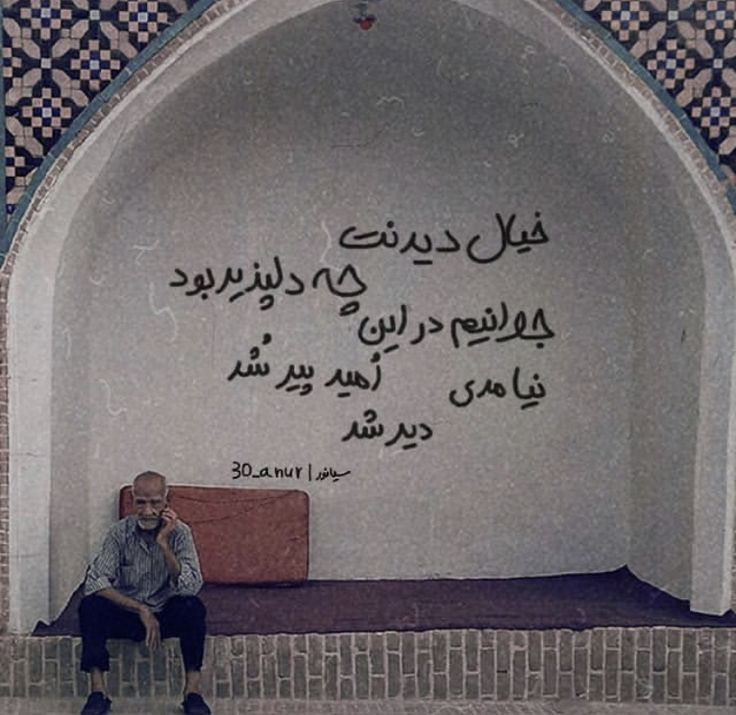 خیال دیدنت
چه دلپذیر بود
جوانیم در این
اُمید پیر شُد
نیامدی
دیر شد
سیانور | 30_anur